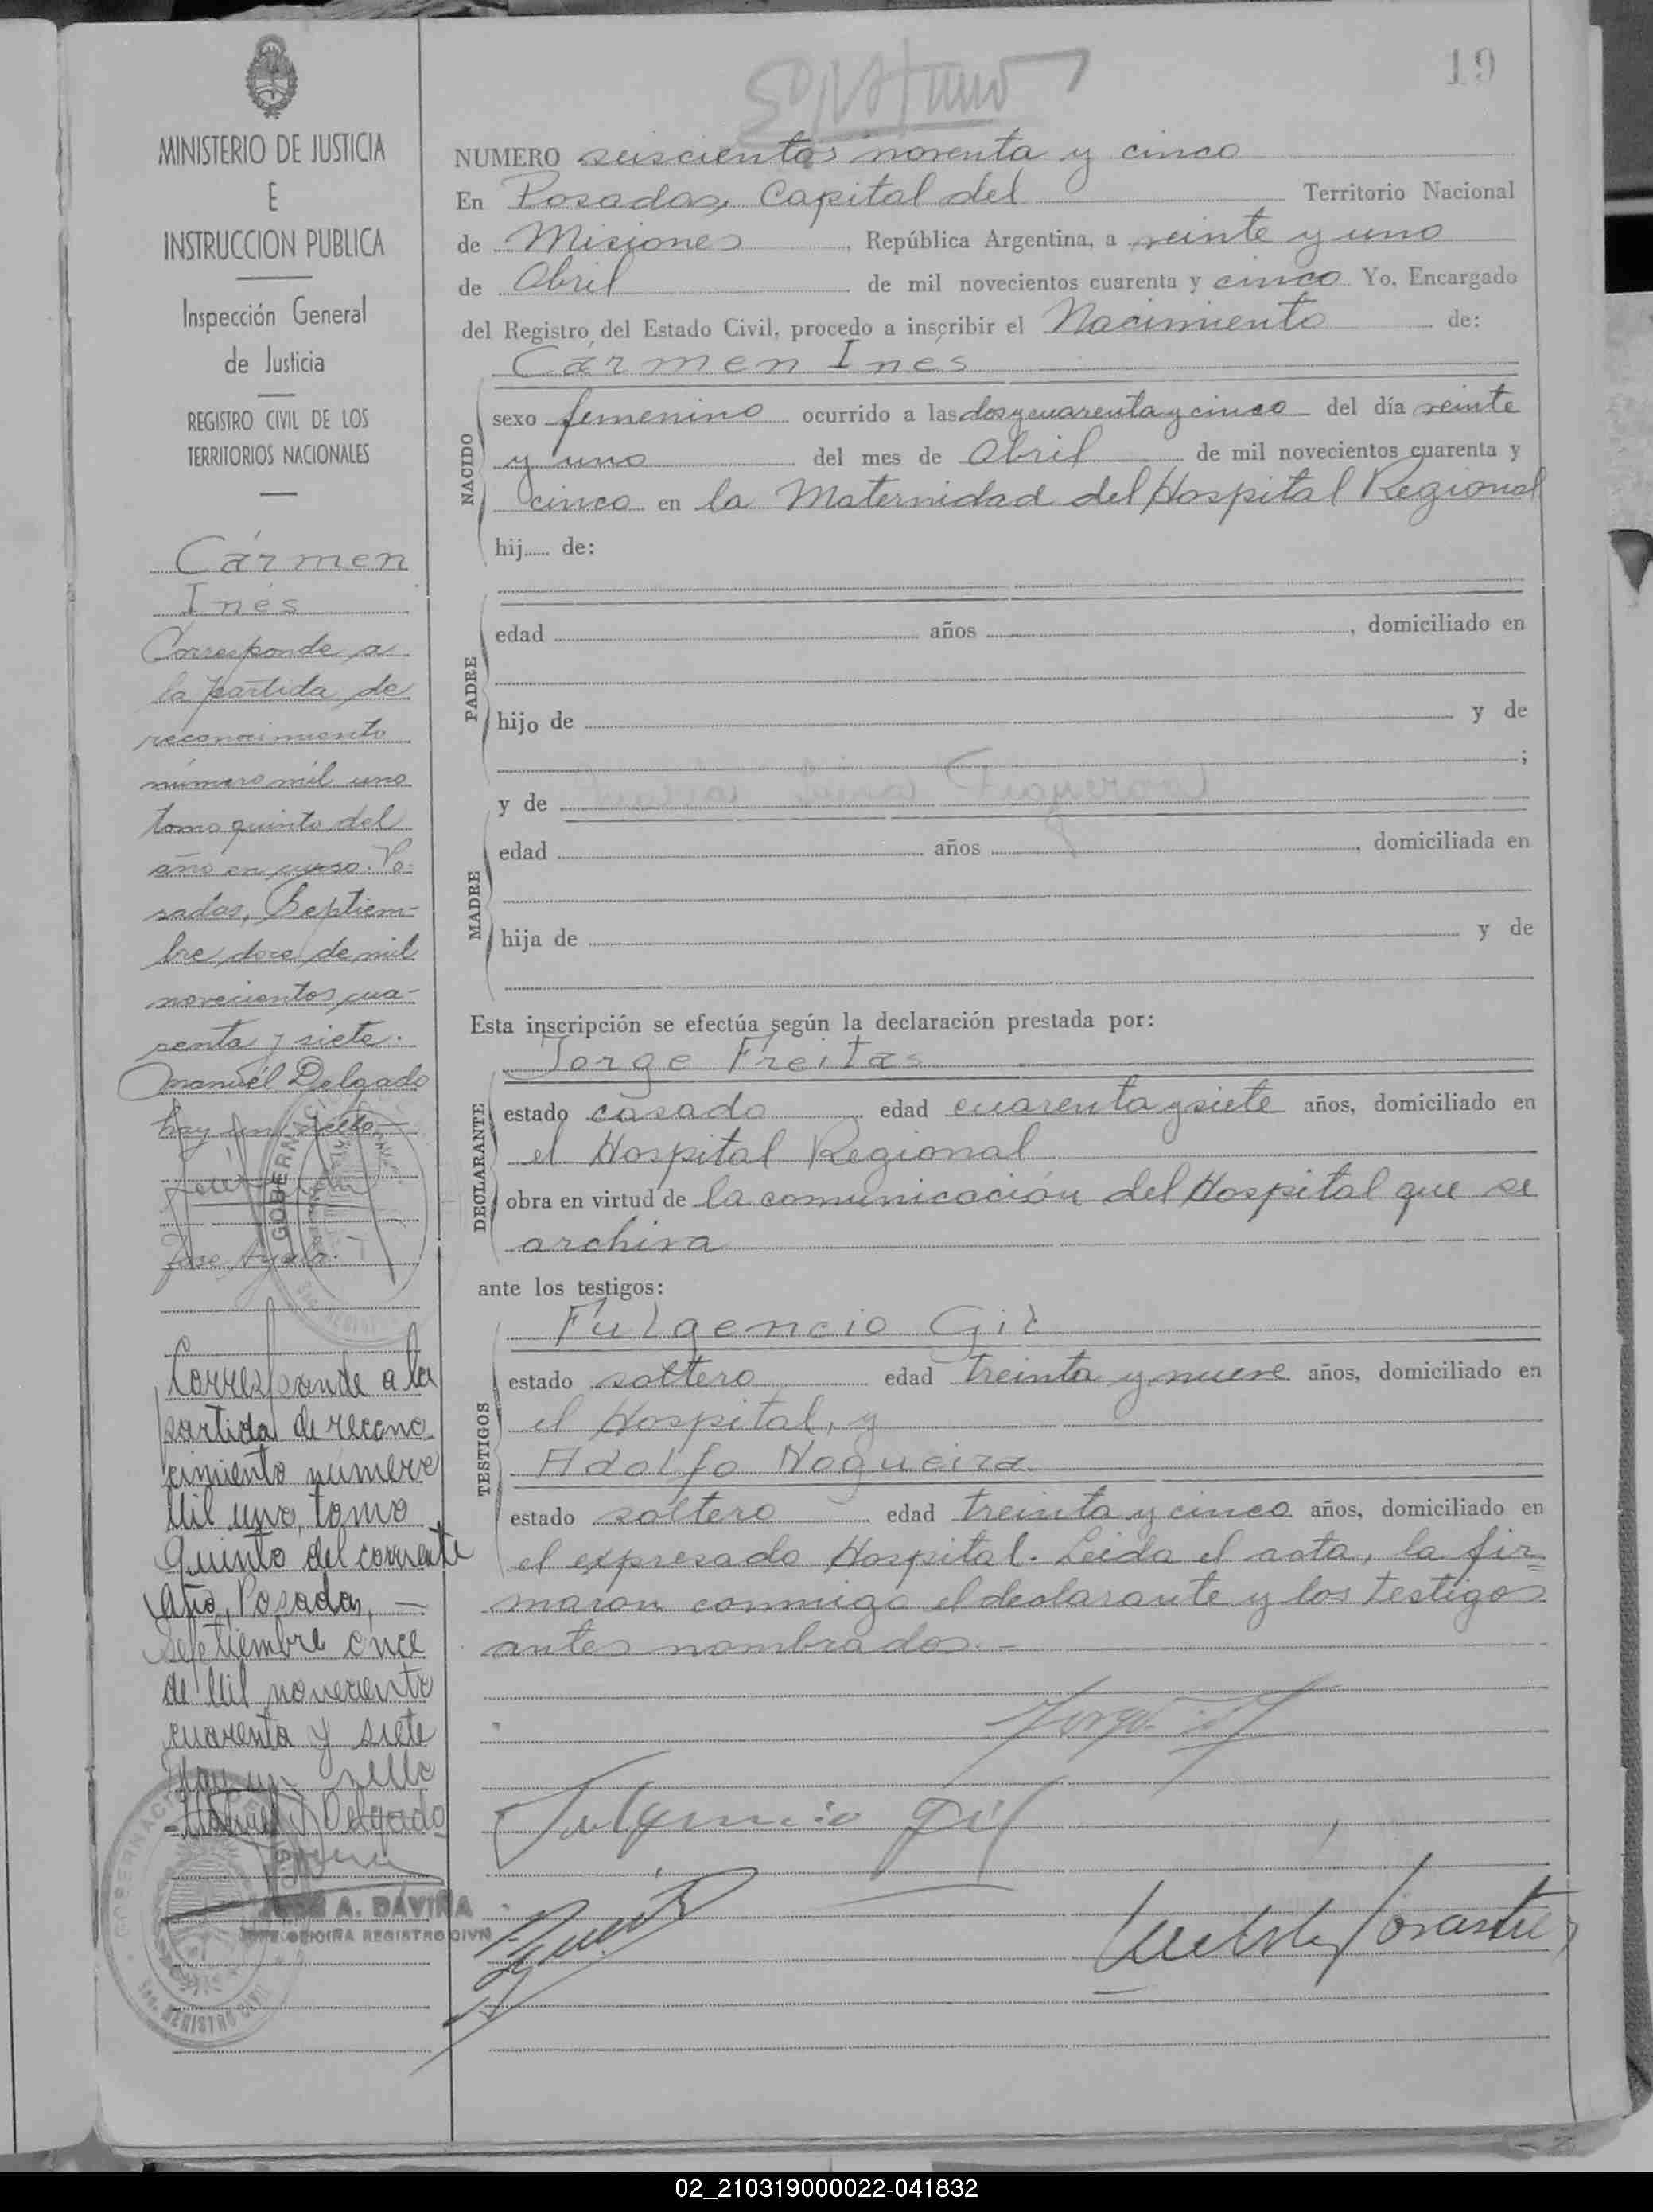 19
MINISTERIO DE JUSTICIA
E
INSTRUCCION PUBLICA
Inspección General
de Justicia
REGISTRO CIVIL DE LOS
TERRITORIOS NACIONALES
Cármen
Inés
Corresponde a
la partida de
reconocimiento
número mil uno
tomo quinto del
año en curso. Po-
sadas, Septiem-
bre doce de mil
novecientos cua-
renta y siete.
Manuel Delgado
hay un sello.
Corresponde a la
partida de recono
cimiento número
Mil uno, tomo
Quinto del corriente
año, Posadas, —
septiembre once
de Mil novecento
cuarenta y siete
Hay un sello
Manuel Delgado
A. DAVIÑA
OFICINA REGISTRO CIVIL
NUMERO seiscientos noventa y cinco
En Posadas, Capital del Territorio Nacional
de Misiones, República Argentina, a veinte y uno
de Abril de mil novecientos cuarenta y cinco Yo, Encargado
del Registro del Estado Civil, procedo a inscribir el Nacimiento de:
Cármen Inés
NACIDO
sexo femenino ocurrido a las dos y cuarenta y cinco del día veinte
y uno del mes de Abril de mil novecientos cuarenta y
cinco en la Maternidad del Hospital Regional
hij..... de:
PADRE
edad años , domiciliado en
hijo de y de
;
y de
MADRE
edad años , domiciliada en
hija de y de
Esta inscripción se efectúa según la declaración prestada por:
Jorge Freitas
DECLARANTE
estado casado edad cuarenta y siete años, domiciliado en
el Hospital Regional
obra en virtud de la comunicación del Hospital que se
archiva
ante los testigos:
Fulgencio Gil
TESTIGOS
estado soltero edad treinta y nueve años, domiciliado en
el Hospital, y
Adolfo Nogueira
estado soltero edad treinta y cinco años, domiciliado en
el expresado Hospital. Leida el acta, la fir-
maron conmigo el declarante y los testigos
antes nombrados.-
Fulgencio Gil
02_210319000022-041832